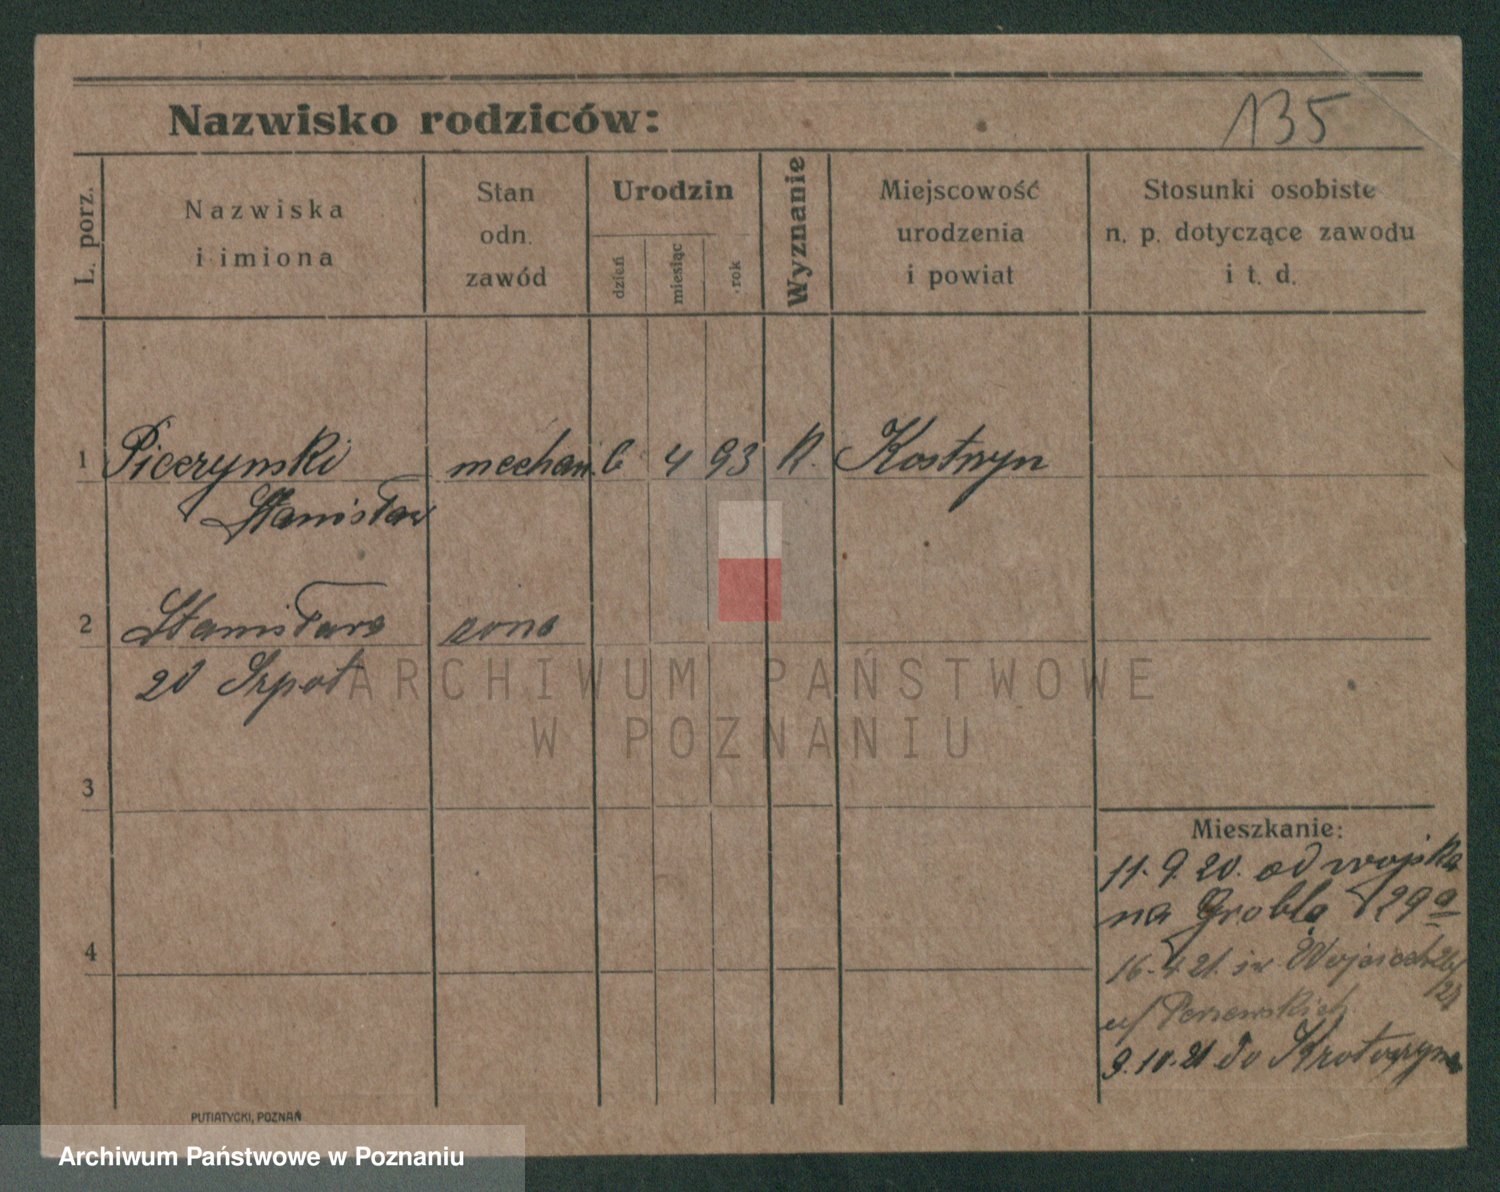 135
Nazwisko rodziców:
L. porz.
Nazwiska
i imiona
Stan
odn.
zawód
Urodzin
dzień
miesiąc
rok
Wyznanie
Miejscowość
urodzenia
i powiat
Stosunki osobiste
n. p. dotyczące zawodu
i t. d.
1 Piczynski mechan. 6 4 93 K. Kostrzyn
Stanisław
2 Stanisława zona
zd Szpot
ARCHIWUM PAŃSTWOWE
W POZNANIU
3
Mieszkanie:
11. 9. 20. od wojska
na Groblą 29a
4
16. 4 21. św Wojciech 26/27
u/
9. 10. 21 do Krotoszyna
PUTIATYCKI, POZNAŃ
Archiwum Państwowe w Poznaniu